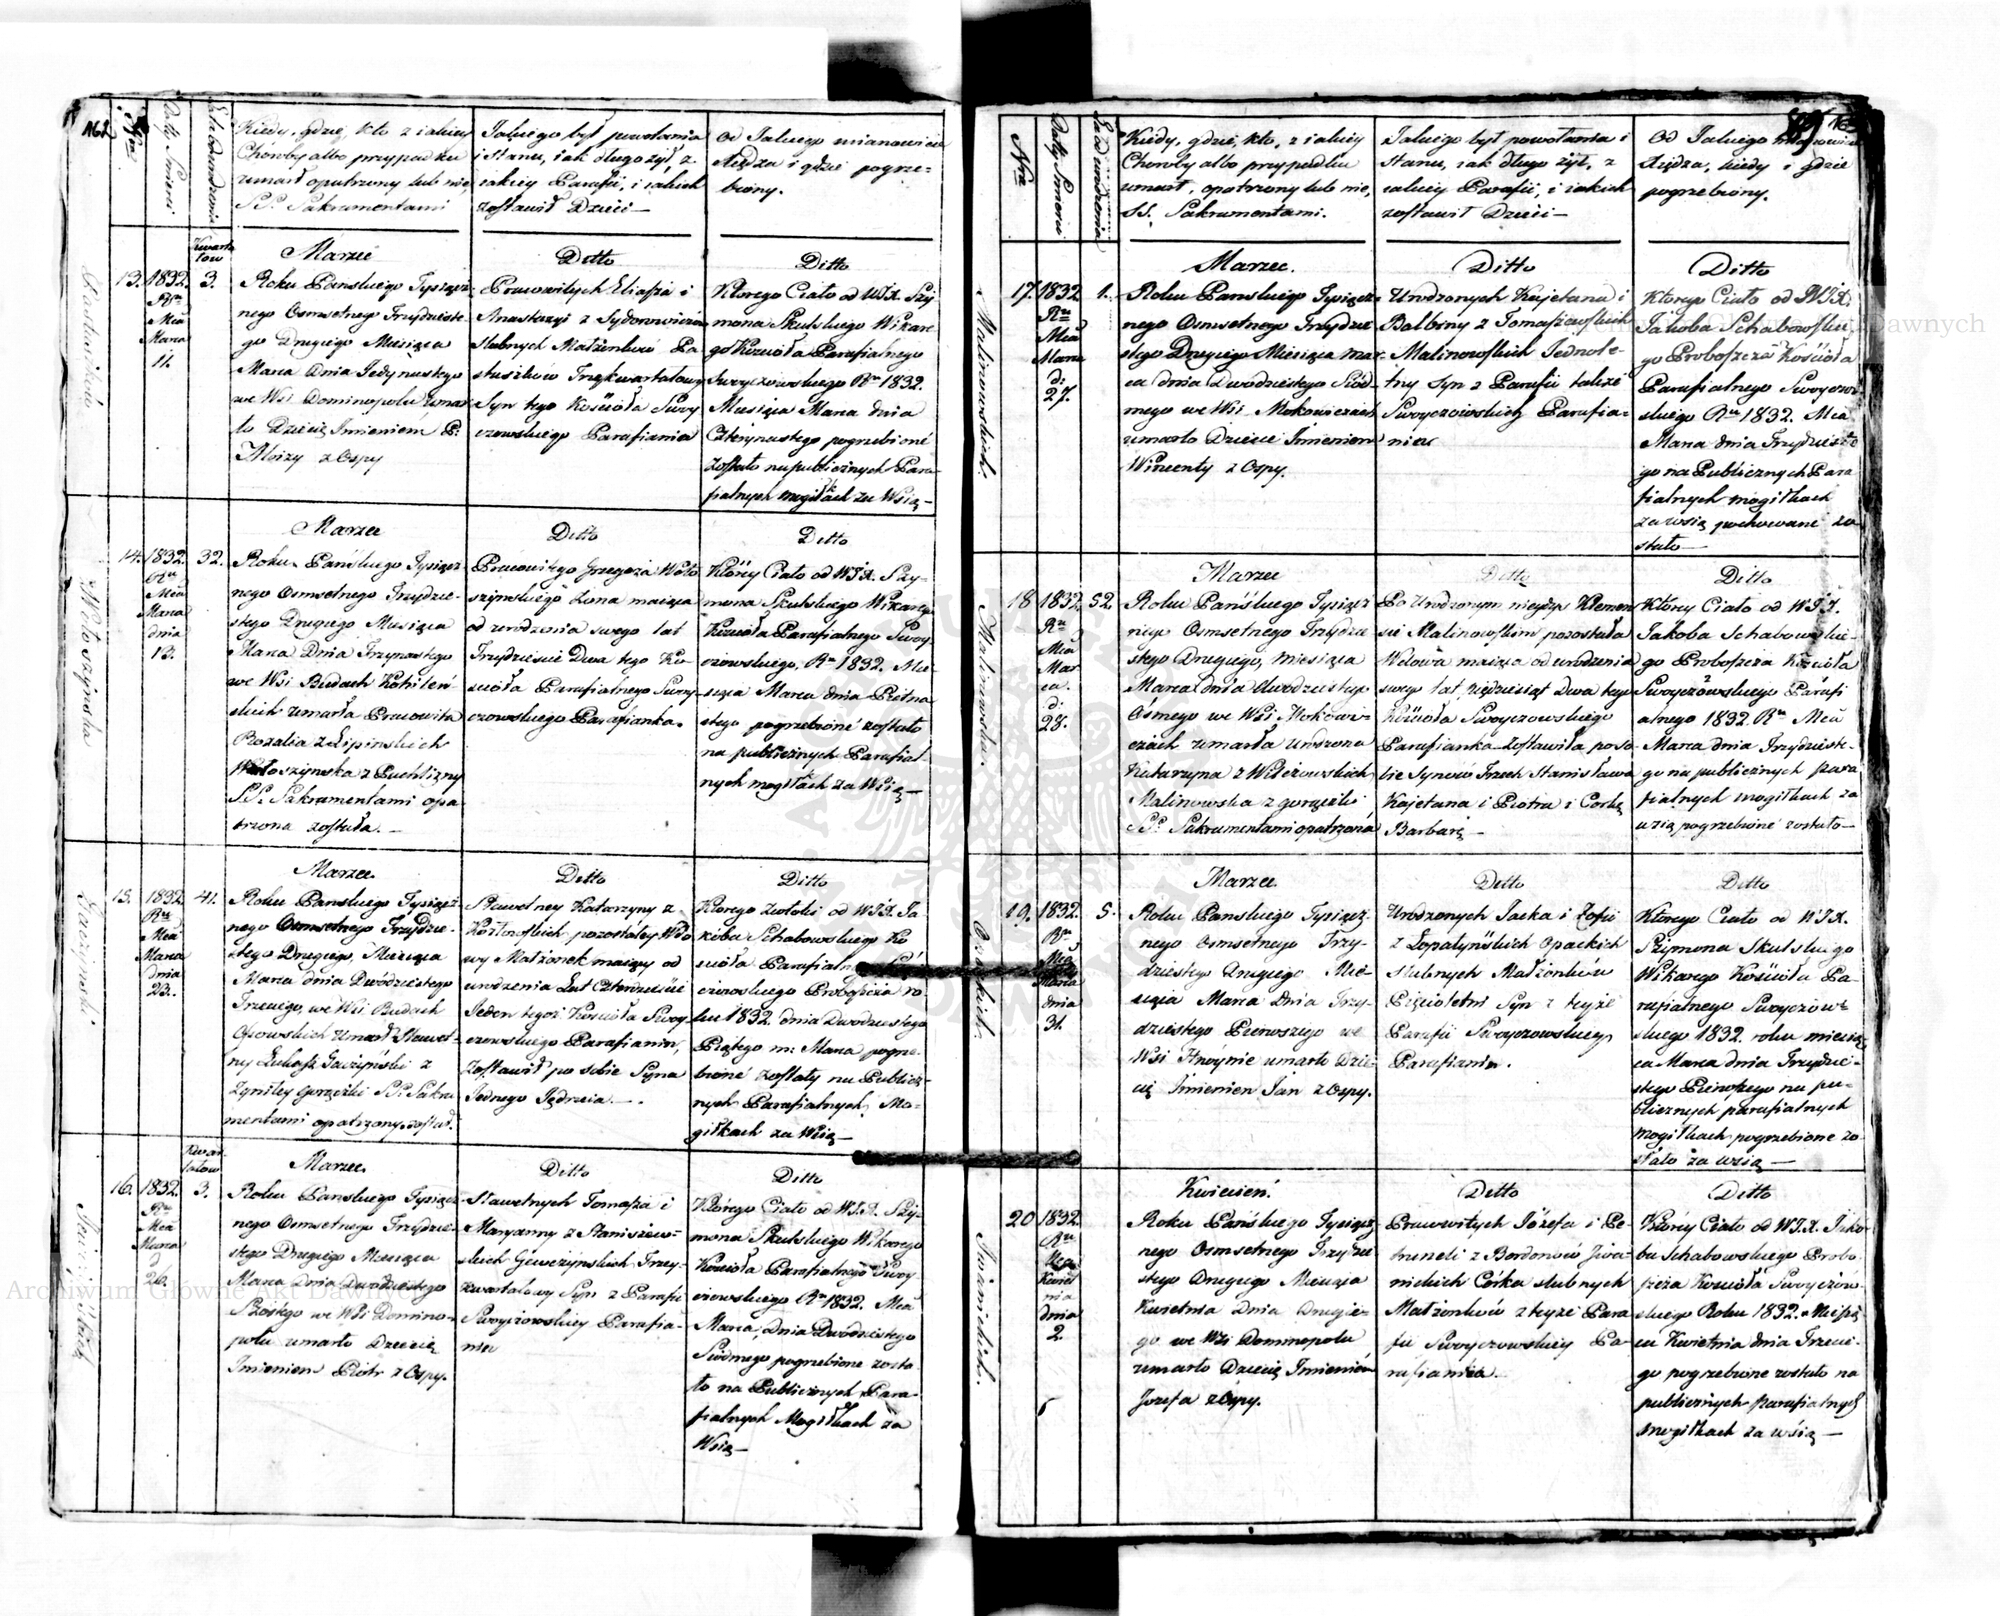 162
Nrz
Daty Smierci
Lta od urodzenia
Kiedy, gdzie, kto z iakiey
Choroby albo przypadku
umarł opatrzony lub nie
SS. Sakramentami
Jakiego był powołania
i Stanu, iak długo żył, z
iakiey Parafii, i iakich
zostawił Dzieci —
Od Jakiego mianowicie
Xiędza i gdzie pogrze-
biony.
13.
1832.
Ru
Mca
Marca
11.
Kwarta
łow
3.
Marzec
Roku Pańskiego Tysiącz-
nego Osmsetnego Trzydzieste-
go Drugiego Miesiąca
Marca Dnia Jedynastego
we Wsi Dominopolu umar-
ło Dziecię Imieniem
z Ospy
Ditto
Pracowitych Eliasza i
Anastazyi z Sydorowiczow
slubnych Małżonków
Trzykwartałowy
Syn tego Kościoła Swoy
czowskiego Parafianin
Ditto
Którego Ciało od WJX. Szy
mona Skulskiego Wikare-
go Kościoła Parafialnego
Swoyczowskiego Ru 1832.
Miesiąca Marca dnia
Czternastego pogrzebioné
zostało na publicznych Para-
fialnych mogiłkach za Wsią —
14.
1832.
Ru
Mca
Marca
dnia
13.
32.
Marzec
Roku Pańskiego Tysiącz-
nego Osmsetnego Trzydzie-
stego Drugiego Miesiąca
Marca Dnia Trzynastego
we Wsi Budach
umarła Pracowita
Rozalia z Lipinskich
Wołoszynska z Puchlizny
SS. Sakramentami opa-
trzona została. —
Ditto
Pracowitego Grzegorza Woło
szynskiego Zona maiąca
od urodzenia swego lat
Trzydzieści Dwa tego Ko-
ścioła Parafialnego Swoy
czowskiego Parafianka.
Ditto
Którey Ciało od WJX. Szy-
mona Skulskiego Wikarego
Kościoła Parafialnego Swoy
czowskiego, Ru 1832. Mie-
siąca Marca dnia Pietna
stego pogrzebioné zostało
na publicznych Parafial-
nych mogiłkach za Wsią —
15.
1832
Ru
Mca
Marca
dnia
23.
41.
Marzec.
Roku Panskiego Tysiącz-
nego Osmsetnego Trzydzie-
stego Drugiego, Miesiąca
Marca dnia Dwódziestego
Trzeciego, we Wsi Budach
Osowskich umarł Sławet-
ny Łukasz z
Zgniłey gorączki SS. Sakra
mentami opatrzony został.
Ditto
Sławetney Katarzyny z
Kozłowskich pozostałey Wdo
wy Małżonek maiący od
urodzenia Lat Czterdzieści
Jeden tegoż Kościoła Swoy-
czowskiego Parafianin,
Zostawił po sobie Syna
Jednego Jędrzeia. —
Ditto
Którego zwłoki od WJX. Ja
kóba Schabowskiego Ko
ścioła Parafialn
czowskiego Proboszcza ro-
ku 1832. dnia Dwodziestego
Piątego m: Marca pogrze-
bioné zostały na Publicz-
nych Parafialnych Mo-
giłkach za Wsią —
16.
1832.
Ru
Mca
Marca
d
26.
Kwar
tałow
3.
Marzec.
Roku Panskiego Tysiącz-
nego Osmsetnego Trzydzie-
stego Drugiego Miesiąca
Marca Dnia Dwodziestego
Szostego we Wsi Domino-
polu umarło Dziecię
Imieniem Piotr z Ospy.
Ditto
Sławetnych Tomasza i
Maryanny z Staniszew-
skich Trzy-
kwartałowy Syn z Parafii
Swoyczowskiey Parafia-
nin
Ditto
Którego Ciało od WJX. Szy-
mona Skulskiego Wikarego
Kościoła Parafialnego Swoy
czowskiego Ru 1832. Mca
Marca, Dnia Dwódziestego
Siodmego pogrzebione zosta
ło na Publicznych Para-
fialnych Mogiłkach za
Wsią —
Nrz
Daty Smierci
Lta od urodzenia
Kiedy, gdzie, kto, z iakiey
Choroby albo przypadku
umarł, opatrzony lub nie,
SS. Sakramentami.
Jakiego był powołania i
stanu, iak długo żył, z
iakiey Parafii, i iakich
zostawił Dzieci —
Od Jakiego mianowicie
Xiędza, kiedy i gdzie
pogrzebiony.
Malinowskich.
17.
1832
Ru
Mca
Marca
d:
27.
1.
Marzec.
Roku Panskiego Tysiącz-
nego Osmsetnego Trzydzie
stego Drugiego Miesiąca Mar-
ca dnia Dwodziestego Siód-
mego we Wsi Mokowiczach
umarło Dziecie Imieniem
Wincenty z Ospy.
Ditto
Urodzonych Kajetana i
Balbiny z Tomaszewskich
Malinowskich Jednole-
tny Syn z Parafii takżé
Swoyczowskiey Parafia-
nin
Ditto
Którego Ciało od WJX.
Jakoba Schabowskie
go Proboszcza Kościoła
Parafialnego Swoyczow-
skiego Ru 1832. Mca
Marca dnia Trzydzieste
go na Publicznych Para
fialnych mogiłkach
za wsią pochowané zo-
stało —
Malinowska.
18
1832
Ru
Mca
Mar
ca.
d:
28.
52.
Marzec
Roku Pańskiego Tysiącz
nego Osmsetnego Trzydzie
stego Drugiego, miesiąca
Marca dnia dwodziestego
Ósmego we Wsi Mokowi-
czach umarła urodzona
Katarzyna z
Malinowska z gorączki
SS. Sakramentami opatrzoná
Ditto
Po Urodzonym niegdyś Klemen
sie Malinowskim pozostała
Wdowa maiąca od urodzenia
swego lat pięćdziesiąt dwa tego
Kościoła Swoyczowskiego
Parafianka Zostawiła po so-
bie Synów Trzech Stanisława
Kajetana i Piotra i Corkę
Barbarę —
Ditto
Którey Ciało od WJX.
Jakoba Schabowskie-
go Proboszcza Kościoła
Swoyczówskiego Parafi
alnego 1832. Ru Mca
Marca dnia Trzydzieste-
go na publicznych para
fialnych mogiłkach za
wsią pogrzebioné zostało —
Opackich.
19.
1832.
Ru
Mca
Marca
dnia
31.
5.
Marzec.
Roku Panskiego Tysiącz-
nego Osmsetnego Trzy-
dziestego Drugiego Mie-
siąca Marca Dnia Trzy-
dziestego Pierwszego we
Wsi Hnoynie umarło Dzie-
cię Imieniem Jan z Ospy.
Ditto
Urodzonych Jacka i Zofii
z Łopatyńskich Opackich
slubnych Małżonków
Pięcioletni Syn z teyże
Parafii Swoyczowskiey
Parafianin.
Ditto
Którego Ciało od WJX.
Szymona Skulskiego
Wikarego Kościoła Pa-
rafialnego Swoyczow-
skiego 1832. roku miesią
ca Marca dnia Trzydzie-
stego Pierwszego na pu-
blicznych parafialnych
mogiłkach pogrzebione zo-
stało za wsią —
Iwanickich.
20
1832.
Ru
Mca
Kwiet
nia
dnia
2.
Kwiecień.
Roku Pańskiego Tysiącz
nego Osmsetnego Trzydzie
stego Drugiego Miesiąca
Kwietnia Dnia Drugie-
go we Wsi Dominopolu
umarło Dziecię Imieniem
Jozefa z Ospy.
Ditto
Pracowitych Józefa i Pe-
truneli z Bordonów Iwa-
nickich Córka slubnych
Małżonków z teyże Para
fii Swoyczowskiey Pa-
rafianka.
Ditto
Którey Ciało od WJX. Jako-
ba Schabowskiego Probo-
szcza Kościoła Swoyczow-
skiego Roku 1832. Miesią
ca Kwietnia dnia Trzecie-
go pogrzebione zostało na
publicznych parafialnych
mogiłkach za wsią —
Archiwum Główne Akt Dawnych